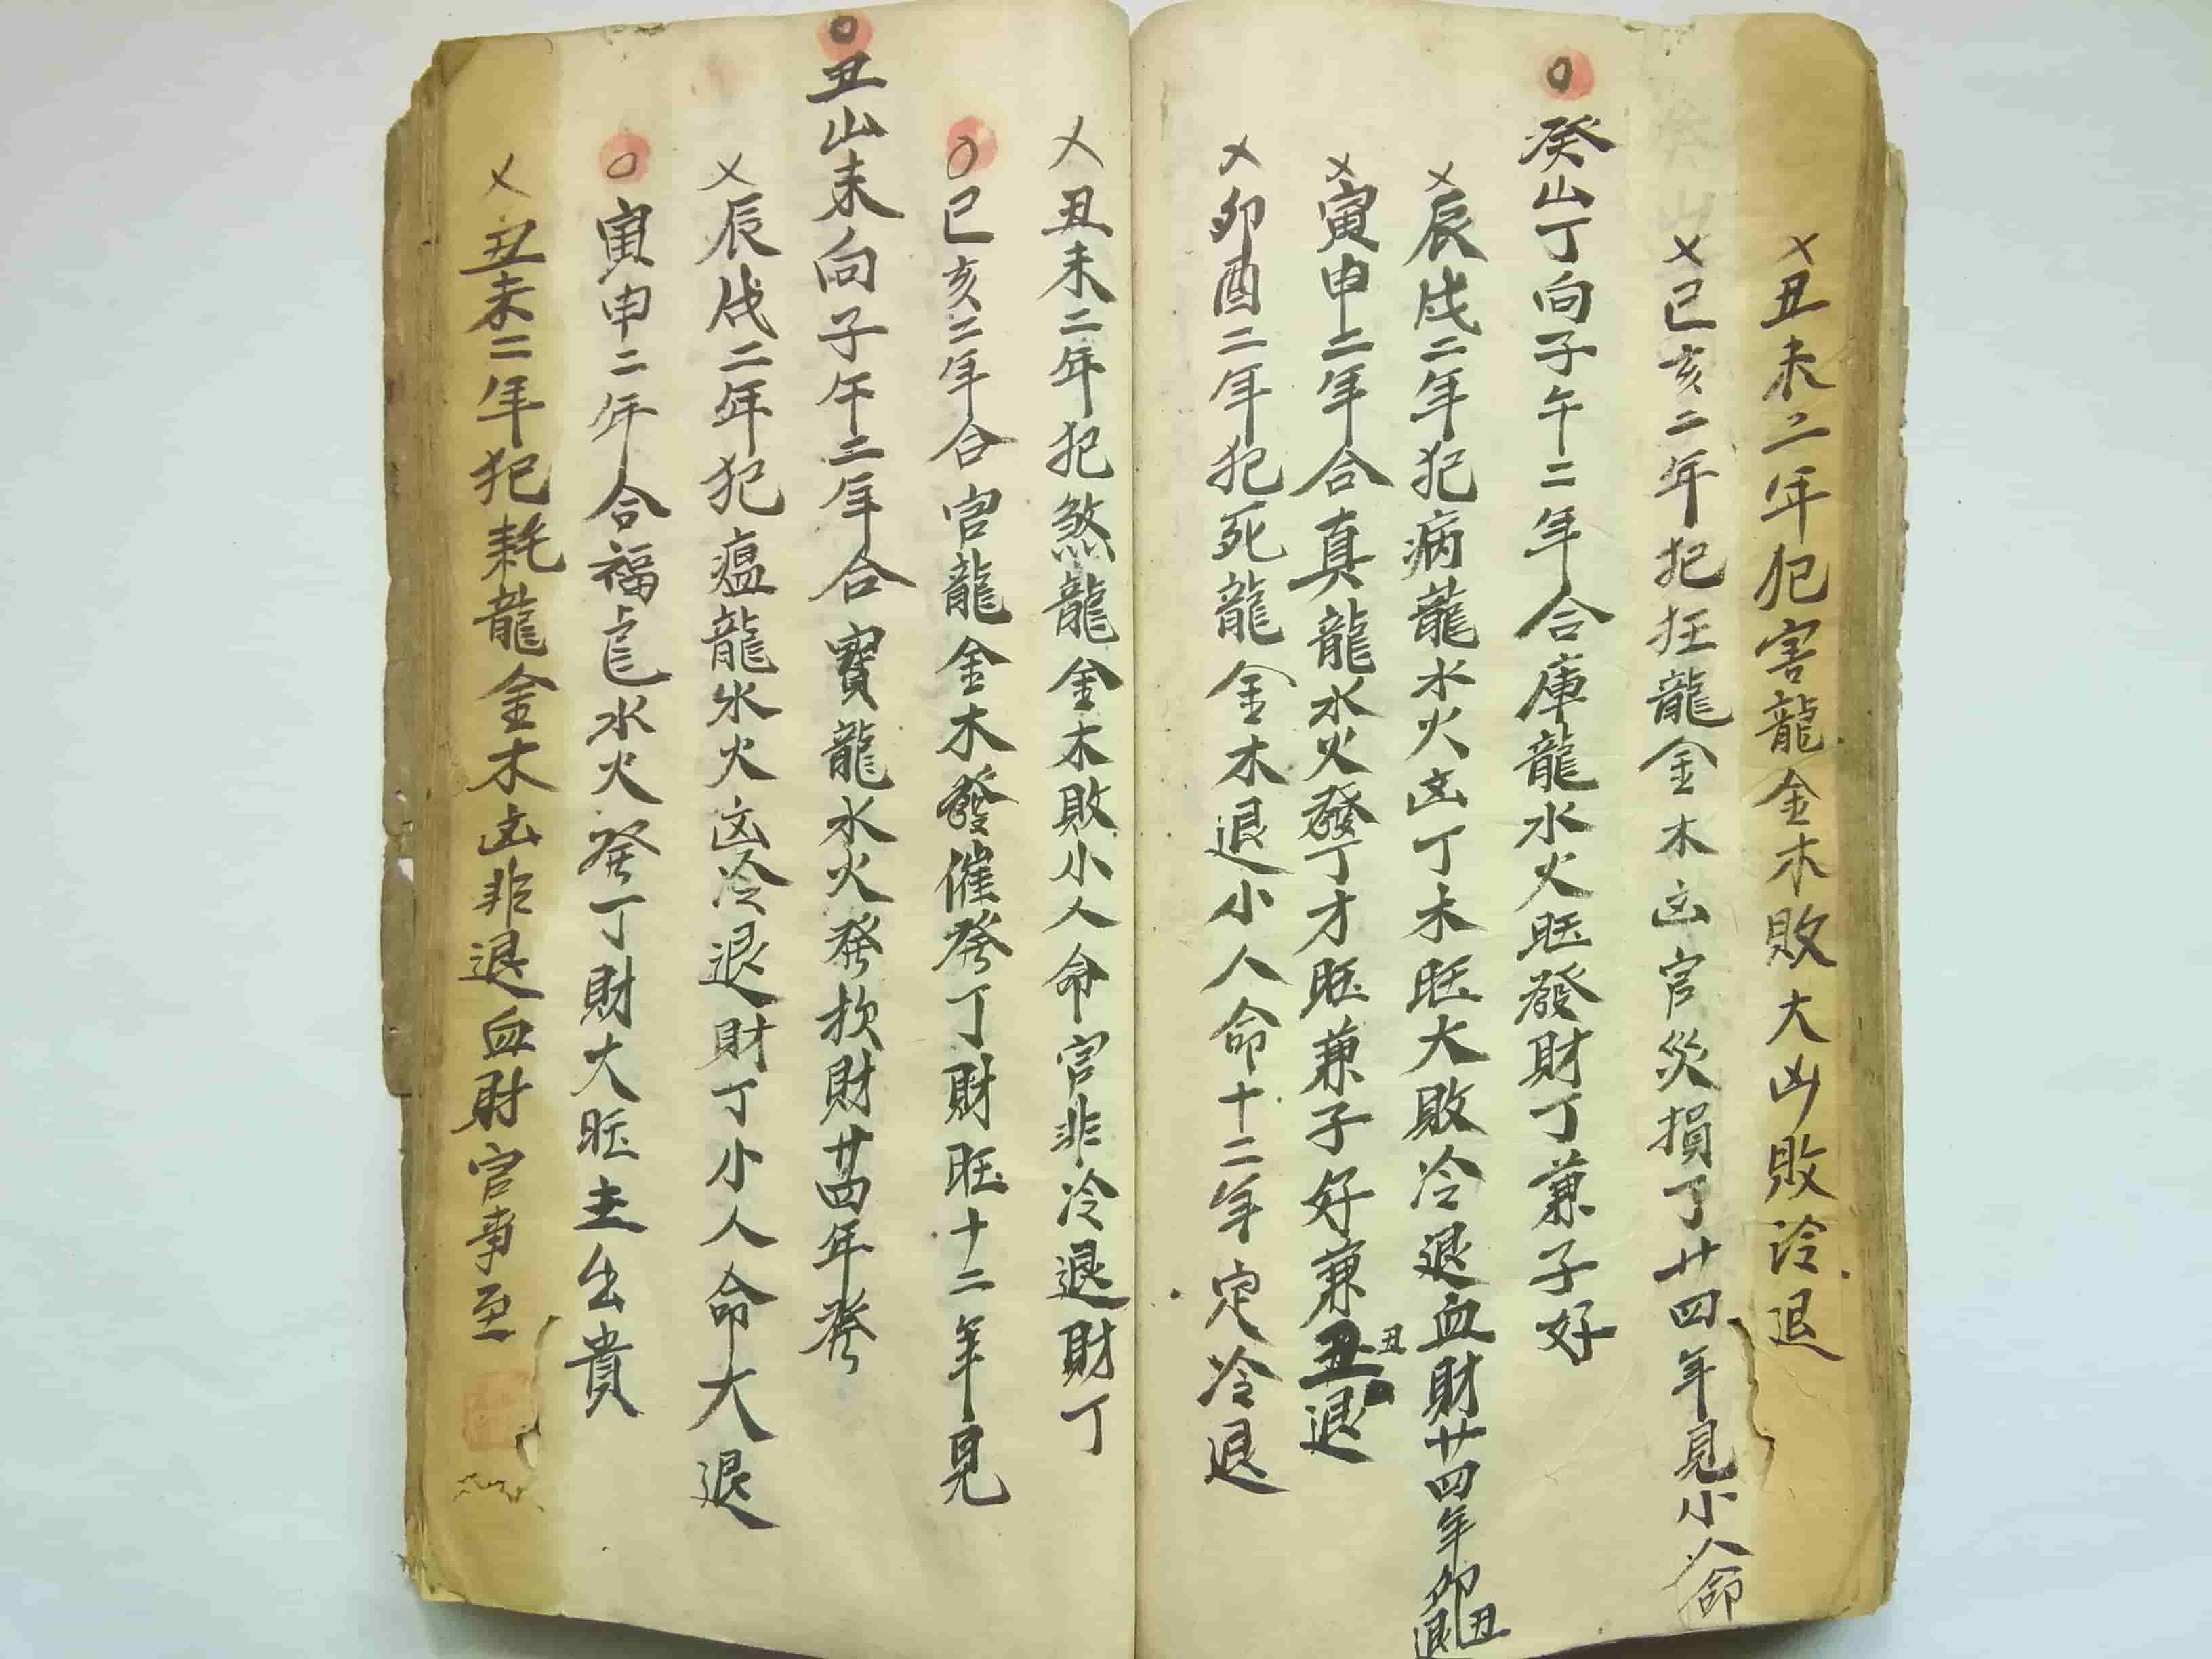 丑未二年犯害龍金木敗大凶敗冷退
巳亥二年犯狂龍金木凶官災損丁廿四年見小人命
癸山丁向子午二年合庫龍水火旺發財丁兼子好
辰戌二年犯病龍水火凶丁木旺大敗冷退血財廿四年丑退
寅申二年合真龍水火發丁才旺兼子好兼丑丑退
卯酉二年犯死龍金木退小人命十二年定冷退
丑未二年犯煞龍金木敗小人命官非冷退財丁
巳亥二年合官龍金木發催發丁財旺十二年見
丑山未向子午二年合寶龍水火發財廿四年發
辰戌二年犯瘟龍水火凶冷退財丁小人命大退
寅申二年合福龍水火發丁財大旺主出貴
丑未二年犯耗龍金木凶非退血財官事至